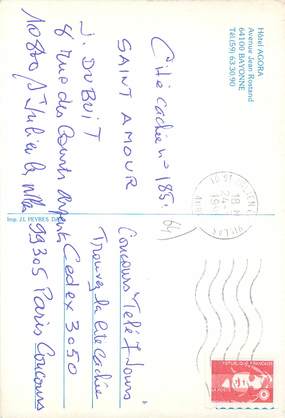 Hôtel AGORA
Avenue Jean Rostand
64100 BAYONNE
Tél (59) 63.30.90
Cité cachée n° 185.
SAINT AMOUR
J. DUBUIT
8 rue des
10800 St Julien les Villas
(64)
Imp. J.L PEYRES
Concours Télé 7 Jours
Trouvez la Cité cachée
Cedex 3050
99305 Paris Concours
REPUBLIQUE FRANCAISE